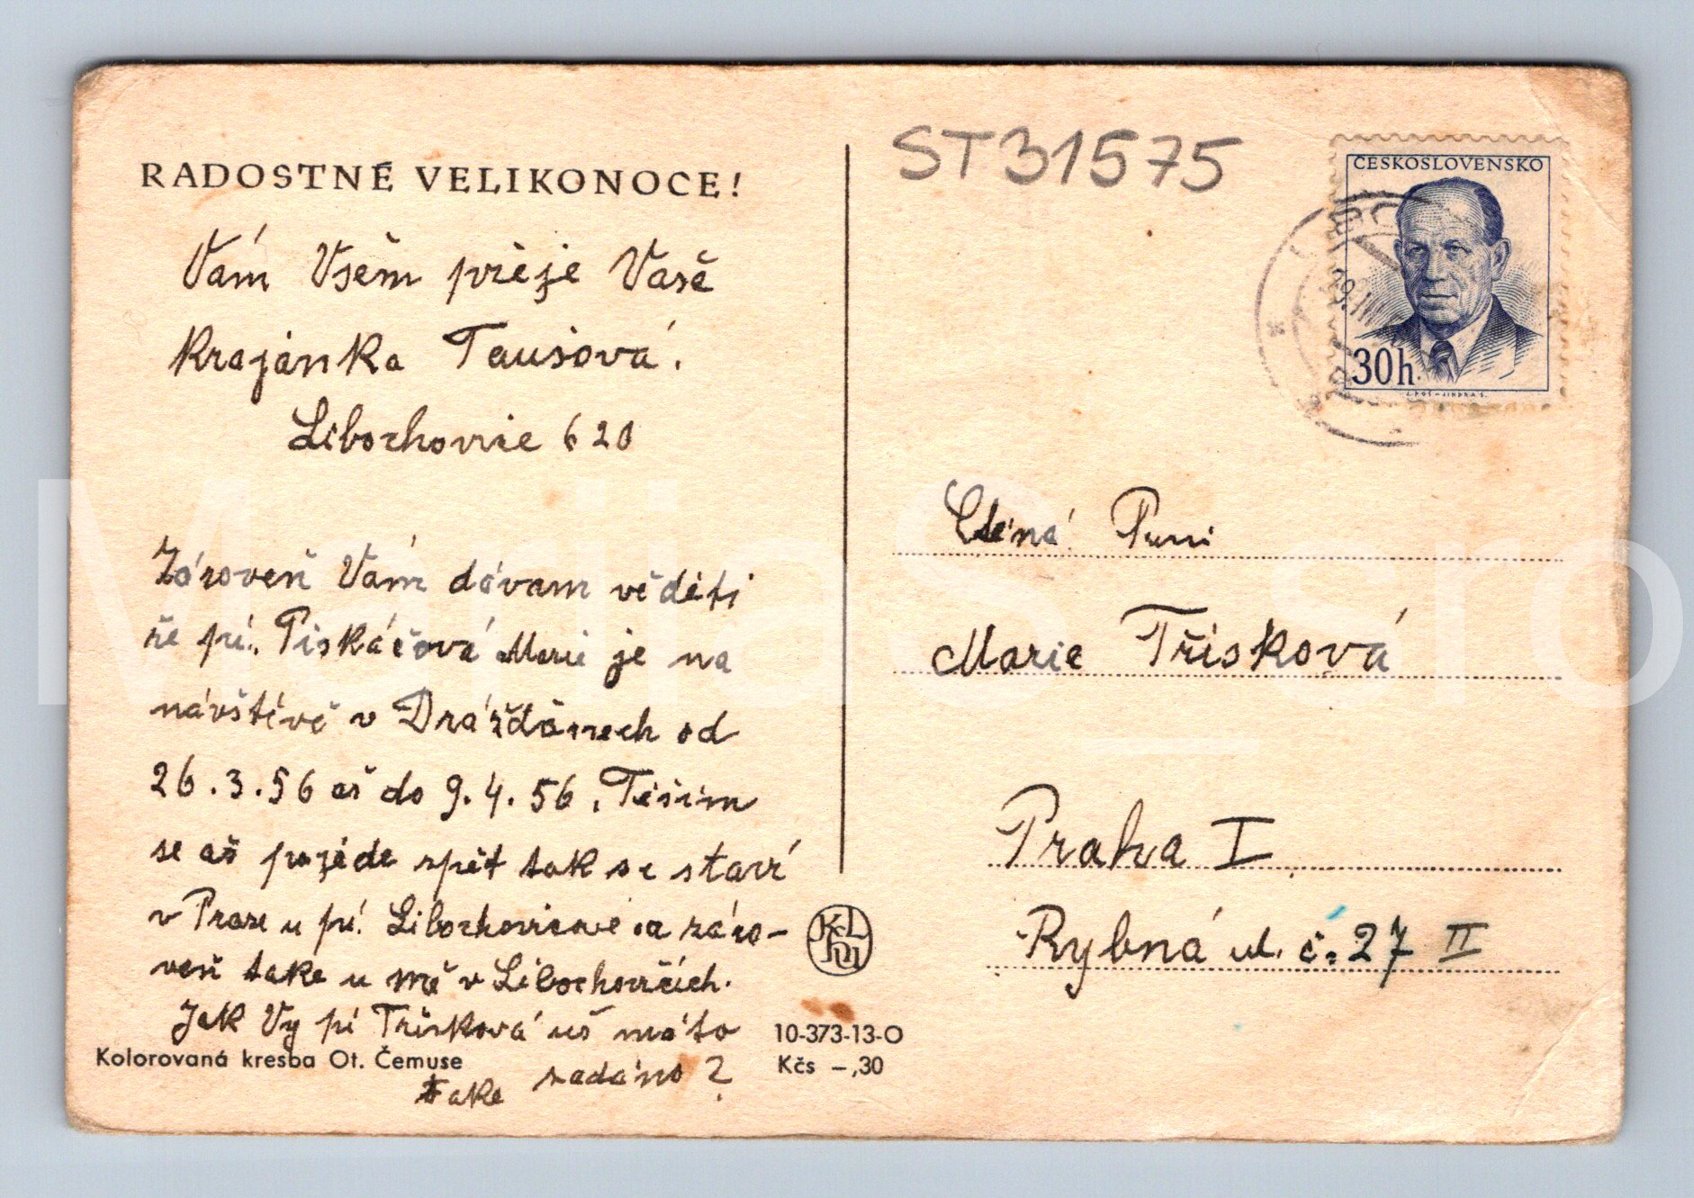 RADOSTNÉ VELIKONOCE!
Vám Všem přeje Vaše
Krajánka Taušová.
Libochovice 620
Zároveň Vám dávam věděti
že pí. Piskáčová Marie je na
návštěvě v Drážďánech od
26.3.56 aš do 9.4.56. Těším
se aš pojede spět tak se staví
v Praze u pí. Libochovicové a záro-
veň take u mě v Libochovicích.
Jak Vy pí Třísková uš máto
take zadáno?
Kolorovaná kresba Ot. Čemuse
10-373-13-O
Kčs –,30
ST31575
ČESKOSLOVENSKO
30h
Ctěná Paní
Marie Třísková
Praha I
Rybná ul. č. 27 II